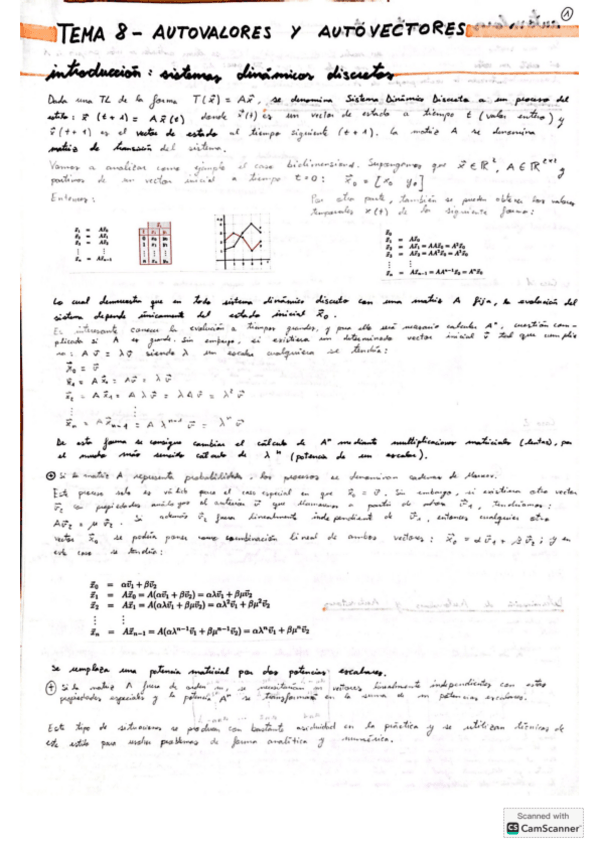 1
TEMA 8 - AUTOVALORES Y AUTOVECTORES
introducción: sistemas dinámicos discretos
Dada una TL de la forma T(x⃗) = Ax⃗, se denomina Sistema Dinámico Discreto a un proceso del
estilo: x⃗(t+1) = A x⃗(t) donde x⃗(t) es un vector de estado a tiempo t (valor entero) y
x⃗(t+1) es el vector de estado al tiempo siguiente (t+1). La matriz A se denomina
matriz de transición del sistema.
Vamos a analizar como ejemplo el caso bidimensional. Supongamos que x⃗ ∈ ℝ², A ∈ ℝ²ˣ² y
partimos de un vector inicial a tiempo t=0: x⃗₀ = [x₀ y₀]
Entonces:
Por otra parte, también se pueden obtener los valores
temporales x(t) de la siguiente forma:
x⃗₁ = Ax⃗₀
x⃗₂ = Ax⃗₁
x⃗₃ = Ax⃗₂
⋮
x⃗ₙ = Ax⃗ₙ₋₁
x⃗₀
x⃗₁ = Ax⃗₀
x⃗₂ = Ax⃗₁ = AAx⃗₀ = A²x⃗₀
x⃗₃ = Ax⃗₂ = AA²x⃗₀ = A³x⃗₀
⋮
x⃗ₙ = Ax⃗ₙ₋₁ = AAⁿ⁻¹x⃗₀ = Aⁿx⃗₀
Lo cual demuestra que en todo sistema dinámico discreto con una matriz A fija, la evolución del
sistema depende únicamente del estado inicial x⃗₀.
Es interesante conocer la evolución a tiempos grandes, y para ello será necesario calcular Aⁿ, cuestión com-
plicada si A es grande. Sin embargo, si existiera un determinado vector inicial v⃗ tal que cumplie
ra: Av⃗ = λv⃗ siendo λ un escalar cualquiera se tendría:
x⃗₀ = v⃗
x⃗₁ = Ax⃗₀ = Av⃗ = λv⃗
x⃗₂ = Ax⃗₁ = Aλv⃗ = λAv⃗ = λ²v⃗
⋮
x⃗ₙ = Ax⃗ₙ₋₁ = Aλⁿ⁻¹v⃗ = λⁿv⃗
De esta forma se consigue cambiar el cálculo de Aⁿ mediante multiplicaciones matriciales (lentas), por
el mucho más sencillo cálculo de λⁿ (potencia de un escalar).
Si la matriz A representa probabilidades, los procesos se denominan cadenas de Markov.
Este proceso solo es válido para el caso especial en que x⃗₀ = v⃗. Sin embargo, si existiera otro vector
v⃗₂ con propiedades análogas al anterior v⃗ que llamaremos a partir de ahora v⃗₁, tendríamos:
Av⃗₂ = μv⃗₂. Si además v⃗₂ fuera linealmente independiente de v⃗₁, entonces cualquier otro
vector x⃗₀ se podría poner como combinación lineal de ambos vectores: x⃗₀ = αv⃗₁ + βv⃗₂; y en
este caso se tendría:
x⃗₀ = αv⃗₁ + βv⃗₂
x⃗₁ = Ax⃗₀ = A(αv⃗₁ + βv⃗₂) = αλv⃗₁ + βμv⃗₂
x⃗₂ = Ax⃗₁ = A(αλv⃗₁ + βμv⃗₂) = αλ²v⃗₁ + βμ²v⃗₂
⋮
x⃗ₙ = Ax⃗ₙ₋₁ = A(αλⁿ⁻¹v⃗₁ + βμⁿ⁻¹v⃗₂) = αλⁿv⃗₁ + βμⁿv⃗₂
Se remplaza una potencia matricial por dos potencias escalares.
Si la matriz A fuera de orden m, se necesitarían m vectores linealmente independientes con estas
propiedades especiales y la potencia Aⁿ se transformará en la suma de m potencias escalares.
Este tipo de situaciones se producen con bastante asiduidad en la práctica y se utilizan técnicas de
este estilo para resolver problemas de forma analítica y numérica.
Scanned with
CS CamScanner